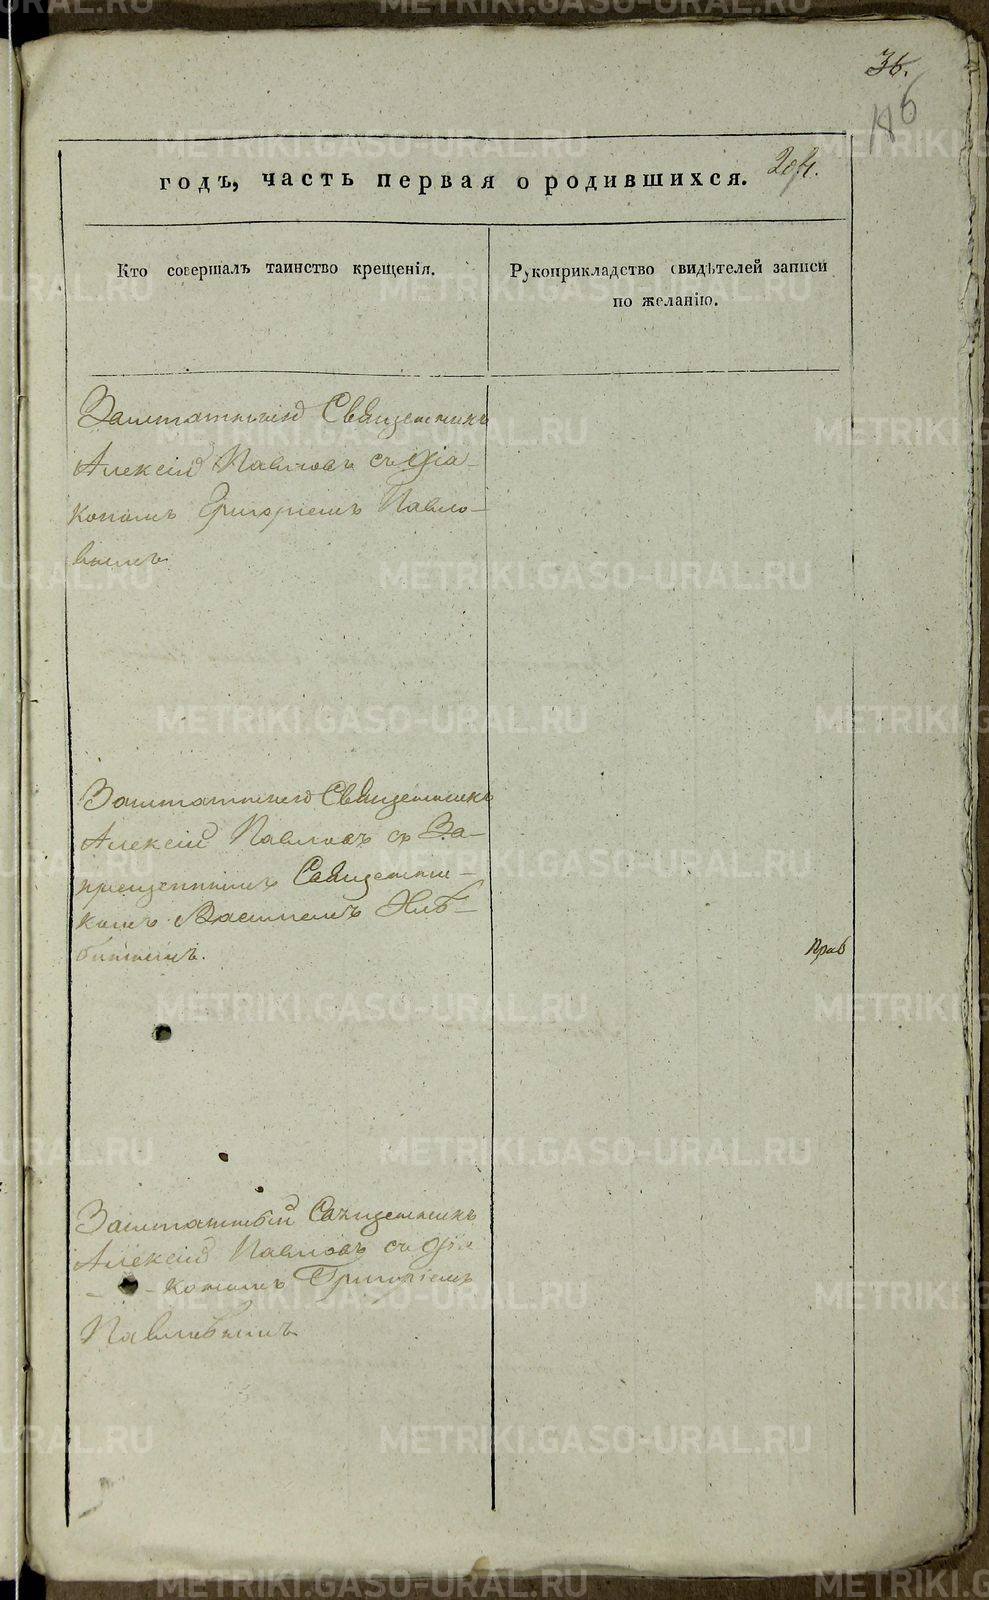 36.
116
годъ, часть первая о родившихся. 204.
Кто совершалъ таинство крещенія.
Рукоприкладство свидѣтелей записи
по желанію.
Заштатный Священникъ
Алексій Павловъ съ Діа-
кономъ Григоріемъ Павло-
вымъ
Заштатный Священникъ
Алексій Павловъ съ За-
прещеннымъ Священни-
комъ Василіемъ
Прав
Заштатный Священникъ
Алексій Павловъ съ Діа
- кономъ Григоріемъ
Павловымъ
METRIKI.GASO-URAL.RU